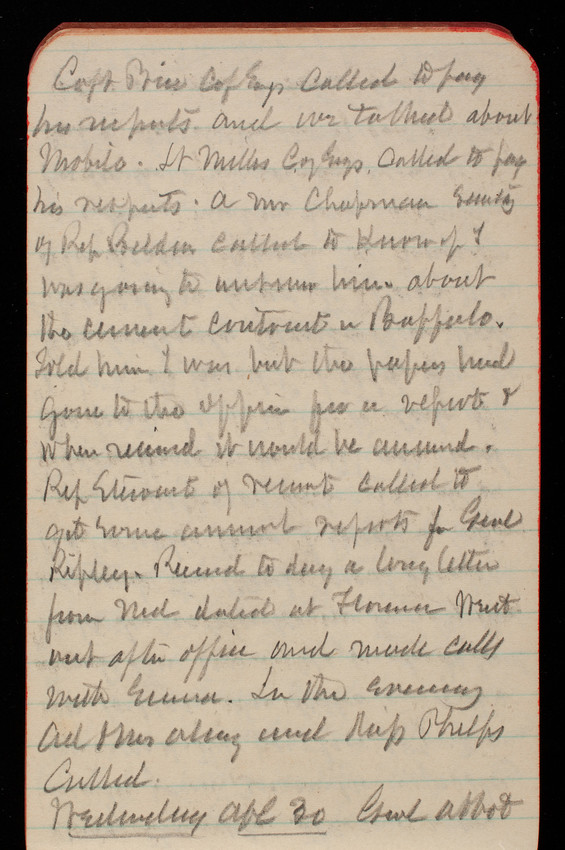 Capt Price C of Engs called to pay
his respects and we talked about
Mobile. Lt Millis C of Engs. called to pay
his respects. A Mr Chapman Secty
of Rep Belden called to know if I
was going to answer him about
the cement contract in Buffalo.
Told him I was but the papers had
gone to the office for a report &
when received it would be answered.
Rep Stewart of Vermont called to
get some annual reports for Genl
Ripley. Received to day a long letter
from Ned dated at Florence Went
out after office and made calls
with Emma. In the evening
Ad &  and Miss Phelps
Called.
Wednesday Apl 30 Genl Abbot